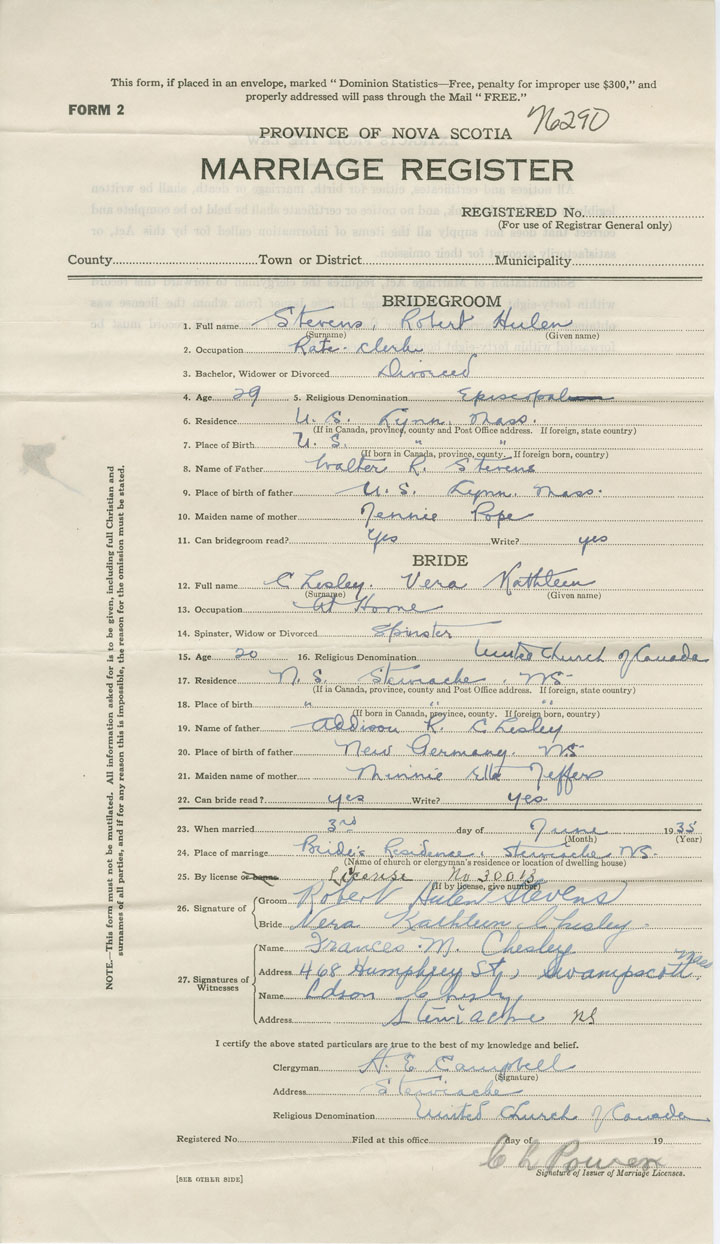 This form, if placed in an envelope, marked "Dominion Statistics—Free, penalty for improper use $300," and
properly addressed will pass through the Mail "FREE."
FORM 2
76290
PROVINCE OF NOVA SCOTIA
MARRIAGE REGISTER
REGISTERED No.
(For use of Registrar General only)
County Town or District Municipality
BRIDEGROOM
1. Full name Stevens, Robert Hulen
(Surname) (Given name)
2. Occupation Rate Clerk
3. Bachelor, Widower or Divorced Divorced
4. Age 29 5. Religious Denomination Episcopal
6. Residence U. S. Lynn, Mass.
(If in Canada, province, county and Post Office address. If foreign, state country)
7. Place of Birth U. S. " "
(If born in Canada, province, county. If foreign born, country)
8. Name of Father Walter R. Stevens
9. Place of birth of father U. S. Lynn. Mass.
10. Maiden name of mother Jennie Pope
11. Can bridegroom read? Yes Write? yes
BRIDE
12. Full name Chesley. Vera Kathleen
(Surname) (Given name)
13. Occupation At Home
14. Spinster, Widow or Divorced Spinster
15. Age 20 16. Religious Denomination United Church of Canada
17. Residence N. S. Stewiacke. NS.
(If in Canada, province, county and Post Office address. If foreign, state country)
18. Place of birth " " "
(If born in Canada, province, county. If foreign born, country)
19. Name of father Addison R. Chesley
20. Place of birth of father New Germany. NS
21. Maiden name of mother Minnie Ella Jeffers
22. Can bride read? yes Write? yes
23. When married 3rd day of June 1935
(Month) (Year)
24. Place of marriage Bride's Residence, Stewiacke NS.
(Name of church or clergyman's residence or location of dwelling house)
25. By license or banns License No 30013
(If by license, give number)
26. Signature of Groom Robert Hulen Stevens
Bride Vera Kathleen Chesley
27. Signatures of Witnesses
Name Frances M. Chesley
Address 468 Humphrey St, Swampscott Mass
Name Edson Chesley
Address Stewiacke NS
I certify the above stated particulars are true to the best of my knowledge and belief.
Clergyman A. E Campbell
(Signature)
Address Stewiacke
Religious Denomination United Church of Canada
Registered No. Filed at this office day of 19
Signature of Issuer of Marriage Licenses.
[SEE OTHER SIDE]
NOTE.—This form must not be mutilated. All information asked for is to be given, including full Christian and
surnames of all parties, and if for any reason this is impossible, the reason for the omission must be stated.